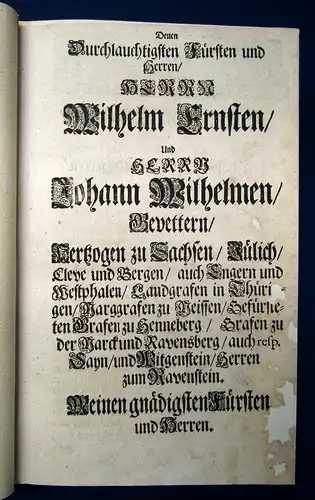 Denen
Durchlauchtigsten Fürsten und
Herren/
HERRN
Wilhelm Ernsten/
Und
HERRN
Johann Wilhelmen/
Gevettern/
Hertzogen zu Sachsen/ Jülich/
Cleve und Bergen/ auch Engern und
Westphalen/ Landgrafen in Thüri-
gen/ Marggrafen zu Meissen/ Gefürste-
ten Grafen zu Henneberg/ Grafen zu
der Marck und Ravensberg/ auch resp.
Sayn/ und Witgenstein/ Herren
zum Ravenstein.
Meinen gnädigsten Fürsten
und Herren.